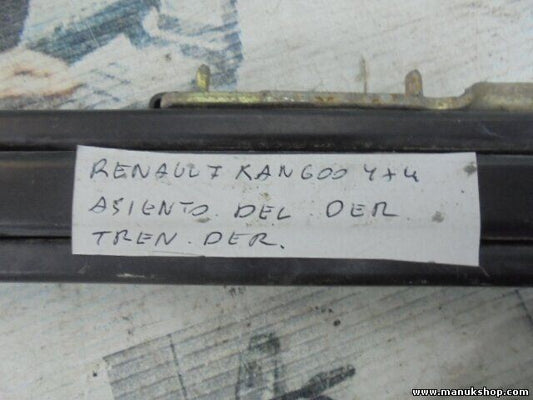 RENAULT KANGOO 4x4
ASIENTO DEL DER
TREN DER.
www.manukshop.com